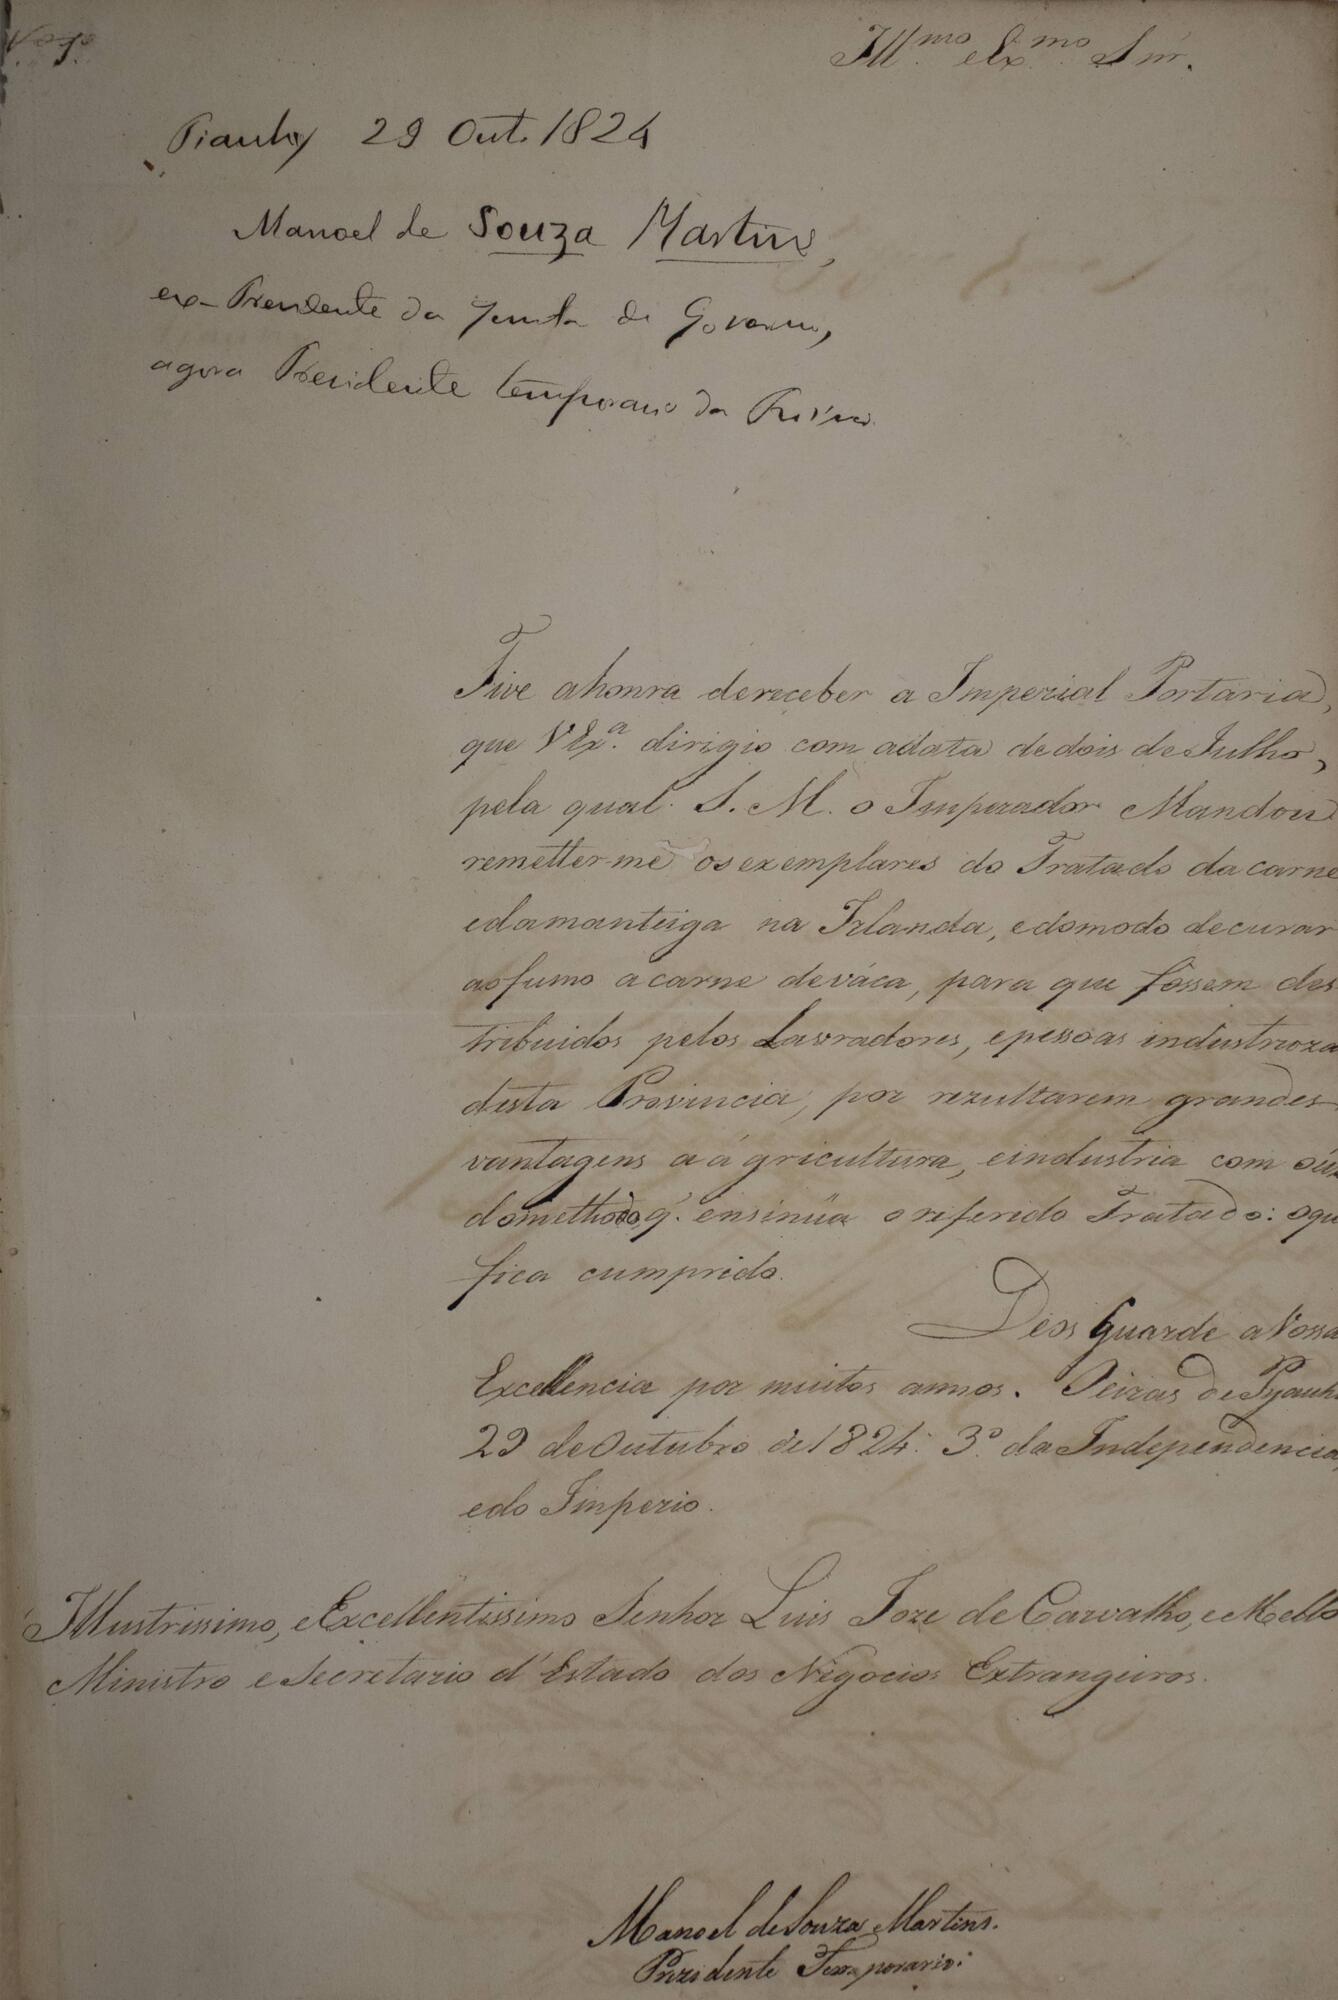 Ill.mo e Ex.mo Snr.
Piauhy 29 Out. 1824
Manoel de Souza Martins,
ex-Presidente da Junta do Governo,
agora Presidente temporario da Provincia
Tive ahonra dereceber a Imperial Portaria,
que V Ex.a dirigio com adata dedois de Julho,
pela qual S. M. o Imperador Mandou
remetter-me os exemplares do Tratado da carne
edamanteiga na Irlanda, edomodo decurar
aofumo a carne deváca, para que fôssem des
tribuidos pelos Lavradores, epessoas industrioza
desta Provincia, por rezultarem grandes
vantagens a á gricultura, eindustria com o
domethodo, q.' ensinúa o referido Tratado: oqu
fica cumprido.
Deos Guarde a Vossa
Excellencia por muitos annos. Oeiras de Pyauh
29 de Outubro de 1824. 3.º da Independencia,
edo Imperio.
Illustrissimo, e Excellentissimo Senhor Luis Joze de Carvalho, e Mello
Ministro e Secretario d'Estado dos Negocios Extrangeiros.
Manoel de Souza Martins.
Prezidente Temporario.